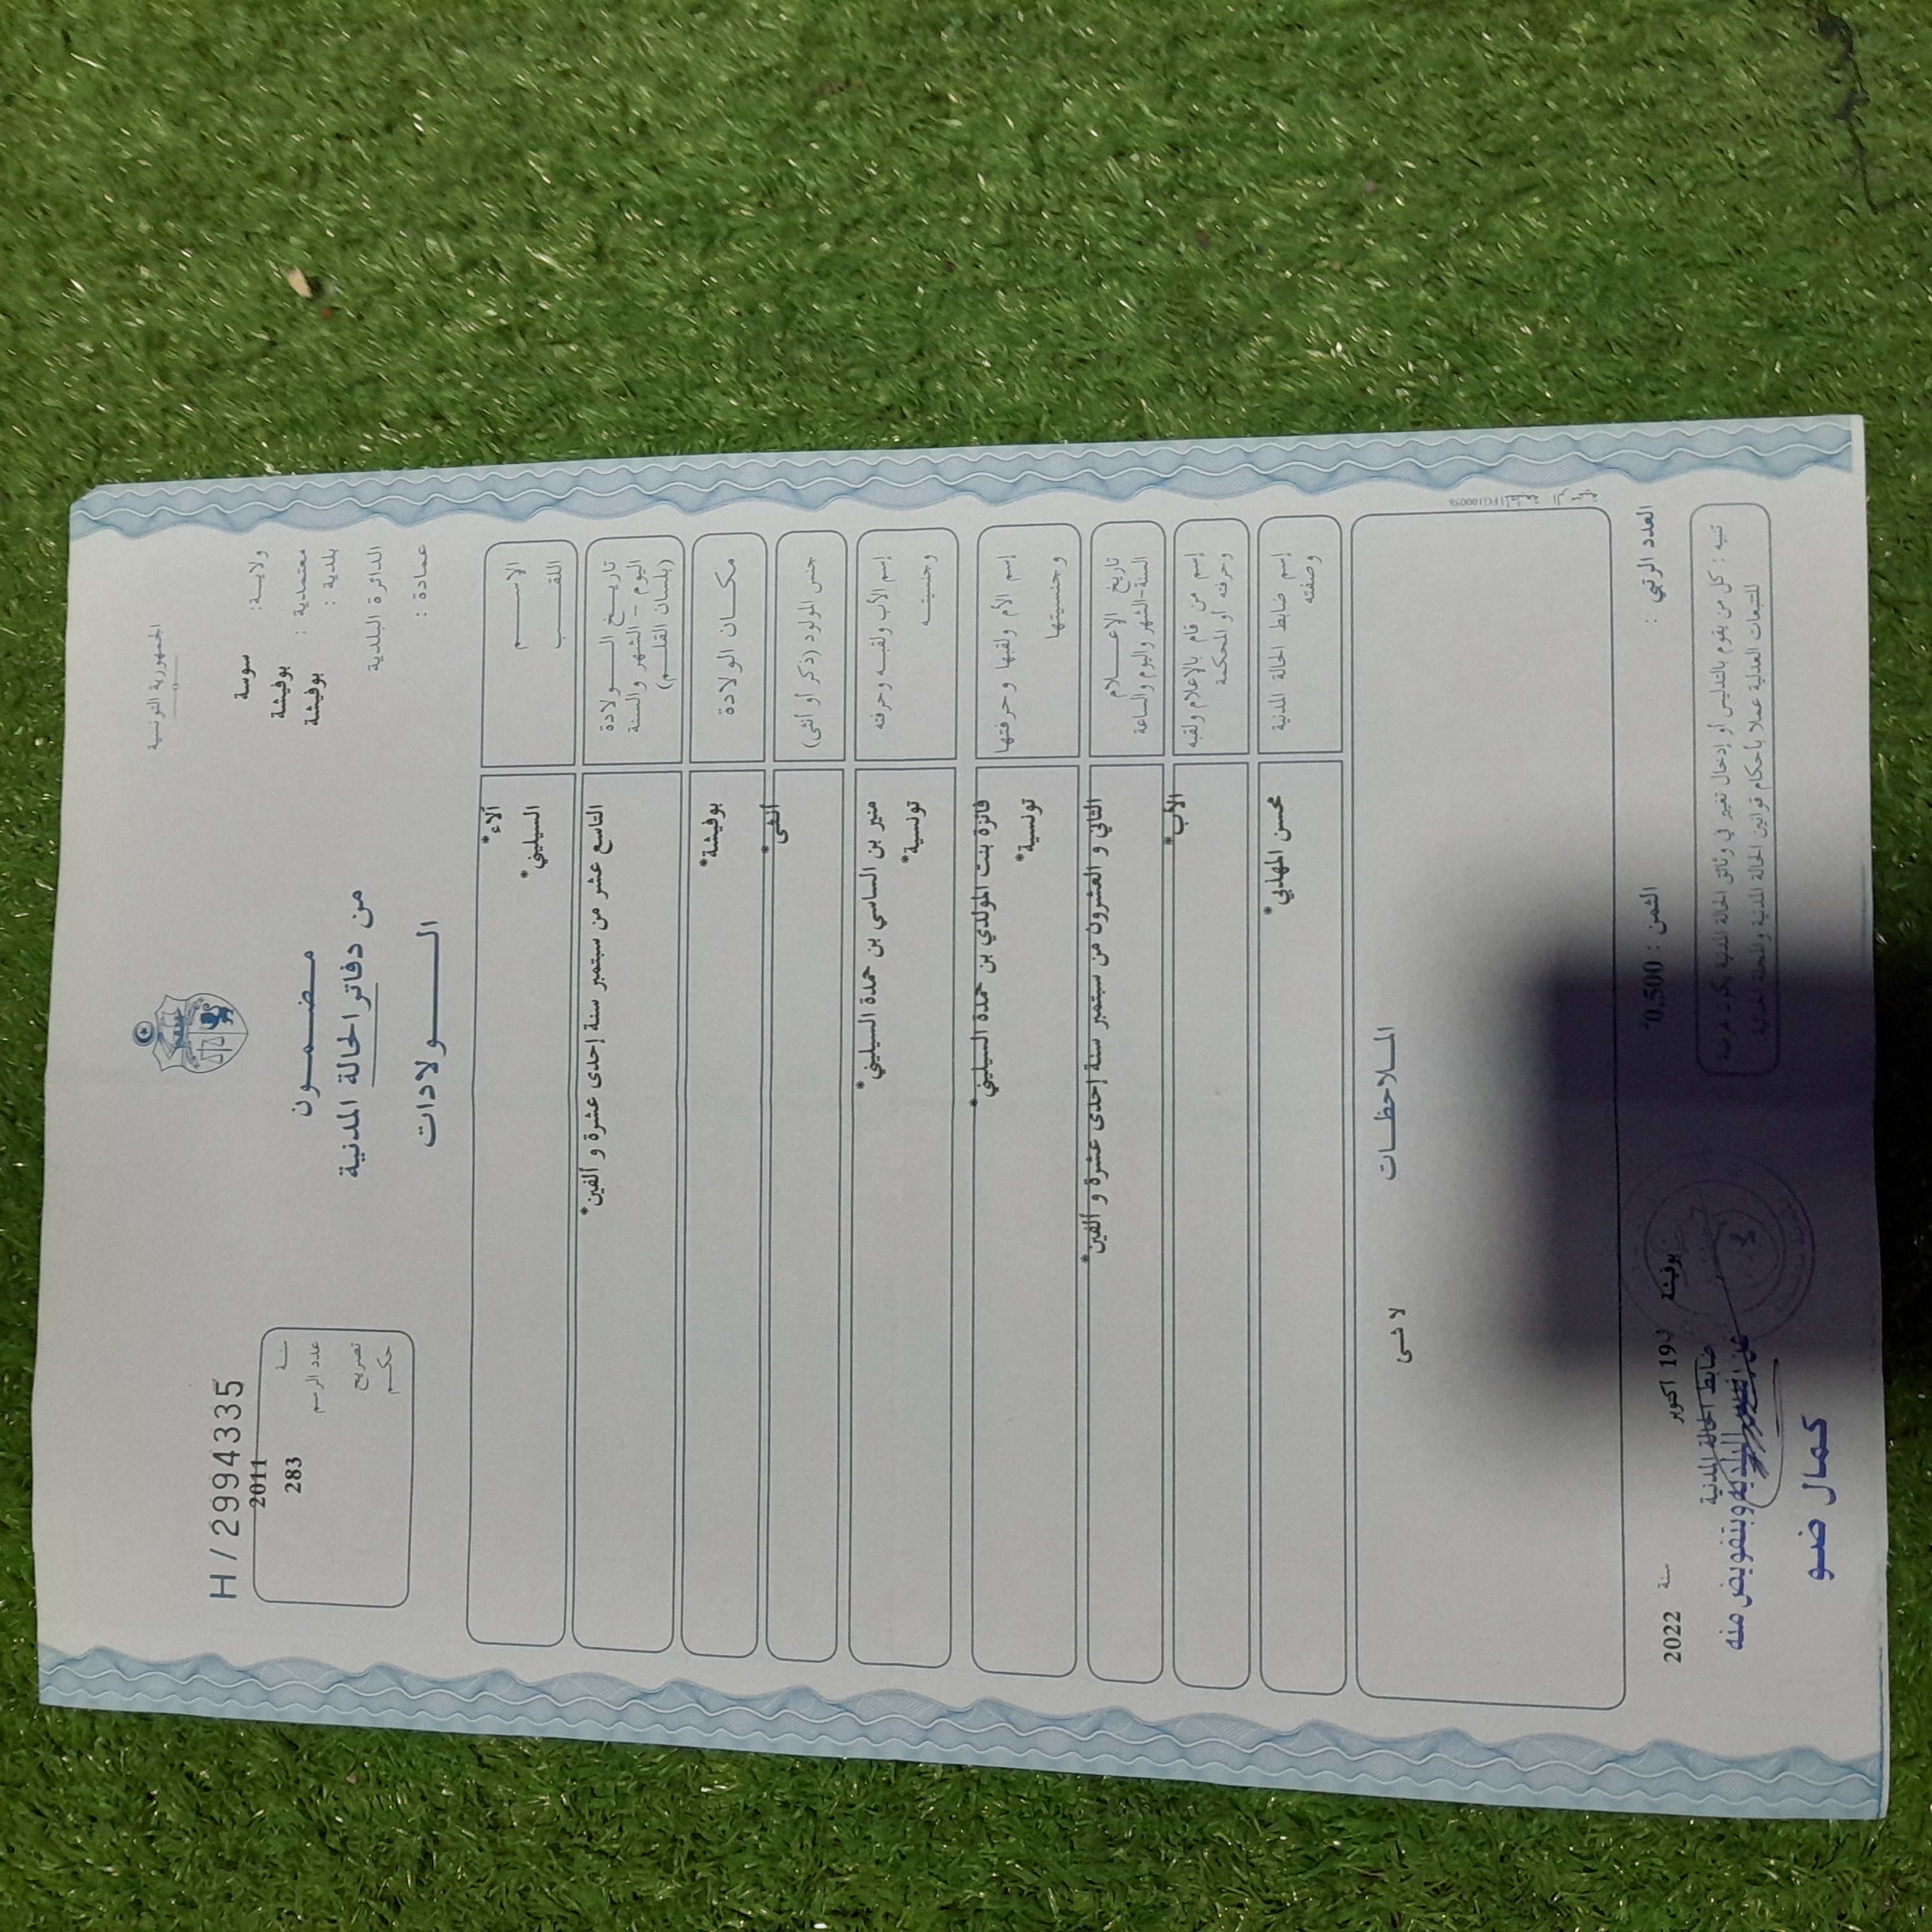 الجمهورية التونسية
ولاية: سوسة
معتمدية : بوفيشة
بلدية : بوفيشة
الدائرة البلدية
عمادة :
H/2994335
سنة 2011
عدد الرسم 283
تصريح
حكم
مضمون
من دفاتر الحالة المدنية
الولادات
الاسم آلاء*
اللقب السيليني*
تاريخ الولادة التاسع عشر من سبتمبر سنة إحدى عشرة و ألفين*
اليوم - الشهر والسنة
(بلسان القلم)
مكان الولادة بوفيشة*
جنس المولود (ذكر أو أنثى) أنثى*
إسم الأب ولقبه وحرفته منير بن الساسي بن حمدة السيليني*
وجنسيته تونسية*
إسم الأم ولقبها وحرفتها فائزة بنت المولدي بن حمدة السيليني*
وجنسيتها تونسية*
تاريخ الإعلام الثاني و العشرون من سبتمبر سنة إحدى عشرة و ألفين*
السنة-الشهر واليوم والساعة
إسم من قام بالإعلام ولقبه الأب*
وحرفته أو المحكمة
إسم ضابط الحالة المدنية محسن المهذبي*
وصفته
الملاحظات
لا شئ
العدد الرتبي :
الثمن : 0.500
بوفيشة في 19 اكتوبر سنة 2022
ضابط الحالة المدنية
البلدية وبتفويض منه
كمال ضو
تنبيه : كل من يقوم بالتدليس أو إدخال تغيير في وثائق الحالة المدنية يكون عرضة
للتتبعات العدلية عملا بأحكام قوانين الحالة المدنية والمجلة الجنائية